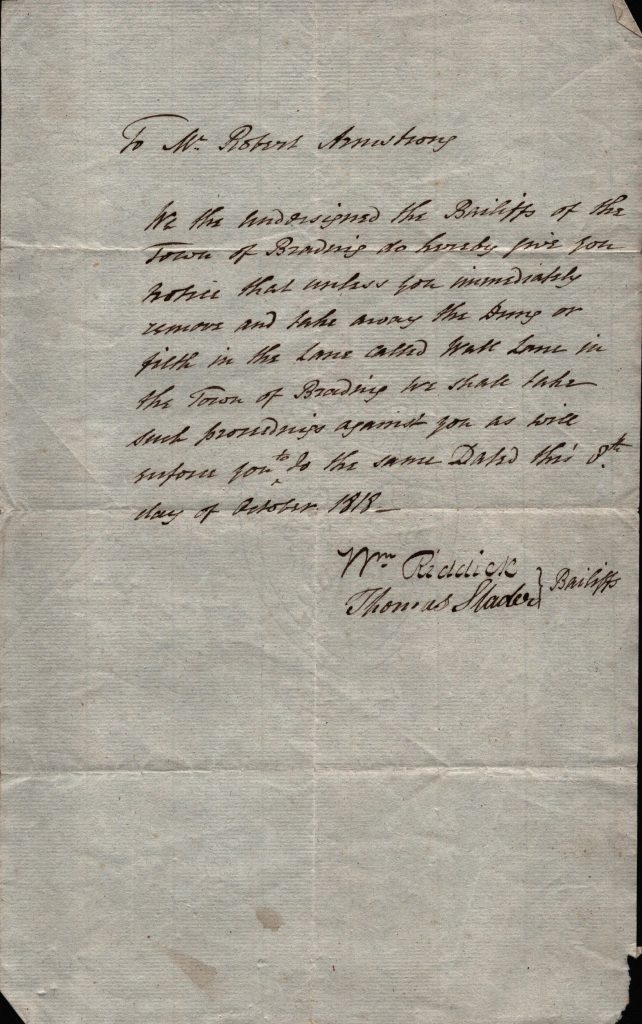 To Mr. Robert Armstrong
We the undersigned the Bailiffs of the
Town of Brading do hereby give you
Notice that unless you immediately
remove and take away the Dung or
filth in the Lane called Wall Lane in
the Town of Brading we shall take
such proceedings against you as will
enforce you to do the same Dated this 8th
day of October 1818
Wm Riddick
Thomas Slader } Bailiffs